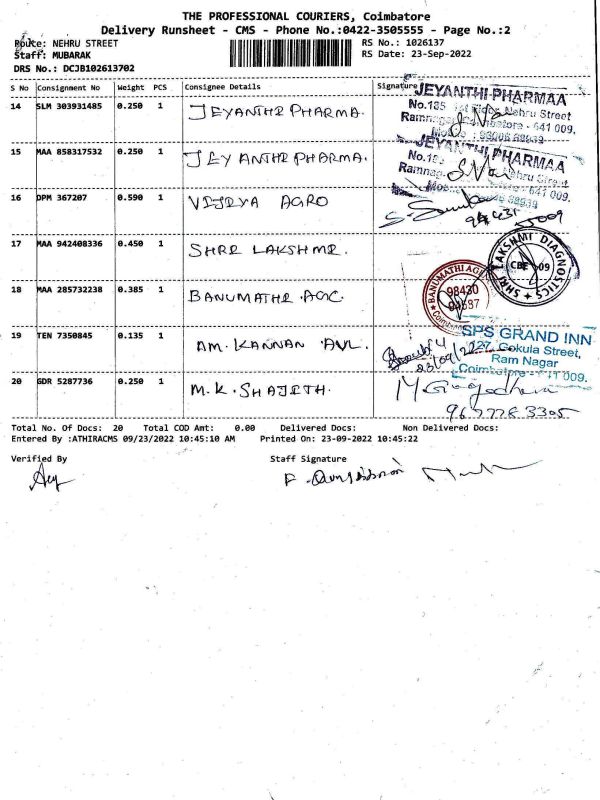 THE PROFESSIONAL COURIERS, Coimbatore
Delivery Runsheet - CMS - Phone No.:0422-3505555 - Page No.:2
Route: NEHRU STREET
RS No.: 1026137
Staff: MUBARAK
RS Date: 23-Sep-2022
DRS No.: DCJB102613702
S No Consignment No Weight PCS Consignee Details Signature
14 SLM 303931485 0.250 1 JEYANTHI PHARMA.
JEYANTHI PHARMAA
No.185 1st Floor, Nehru Street
Ramnagar, Coimbatore - 641 009.
15 MAA 858317532 0.250 1 JEYANTHI PHARMA.
JEYANTHI PHARMAA
Nehru Street
Ramnag 641 009.
16 DPM 367207 0.590 1 VIJEYA AGRO
17 MAA 942408336 0.450 1 SHRI LAKSHMI.
SHRI LAKSHMI DIAGNOSTICS
CBE - 09
18 MAA 285732238 0.385 1 BANUMATHI AGC
BANUMATHI AG
98430
19 TEN 7350845 0.135 1 AM. KANNAN AVL.
23/09/22
SPS GRAND INN
227, Gokula Street,
Ram Nagar
Coimbatore - 641 009.
20 GDR 5287736 0.250 1 M.K. SHAJITH.
9677783305
Total No. Of Docs: 20 Total COD Amt: 0.00 Delivered Docs: Non Delivered Docs:
Entered By :ATHIRACMS 09/23/2022 10:45:10 AM Printed On: 23-09-2022 10:45:22
Verified By Staff Signature